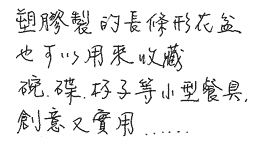 塑膠製的長條形花盆
也可以用來收藏
碗.碟.杯子等小型餐具,
創意又實用......